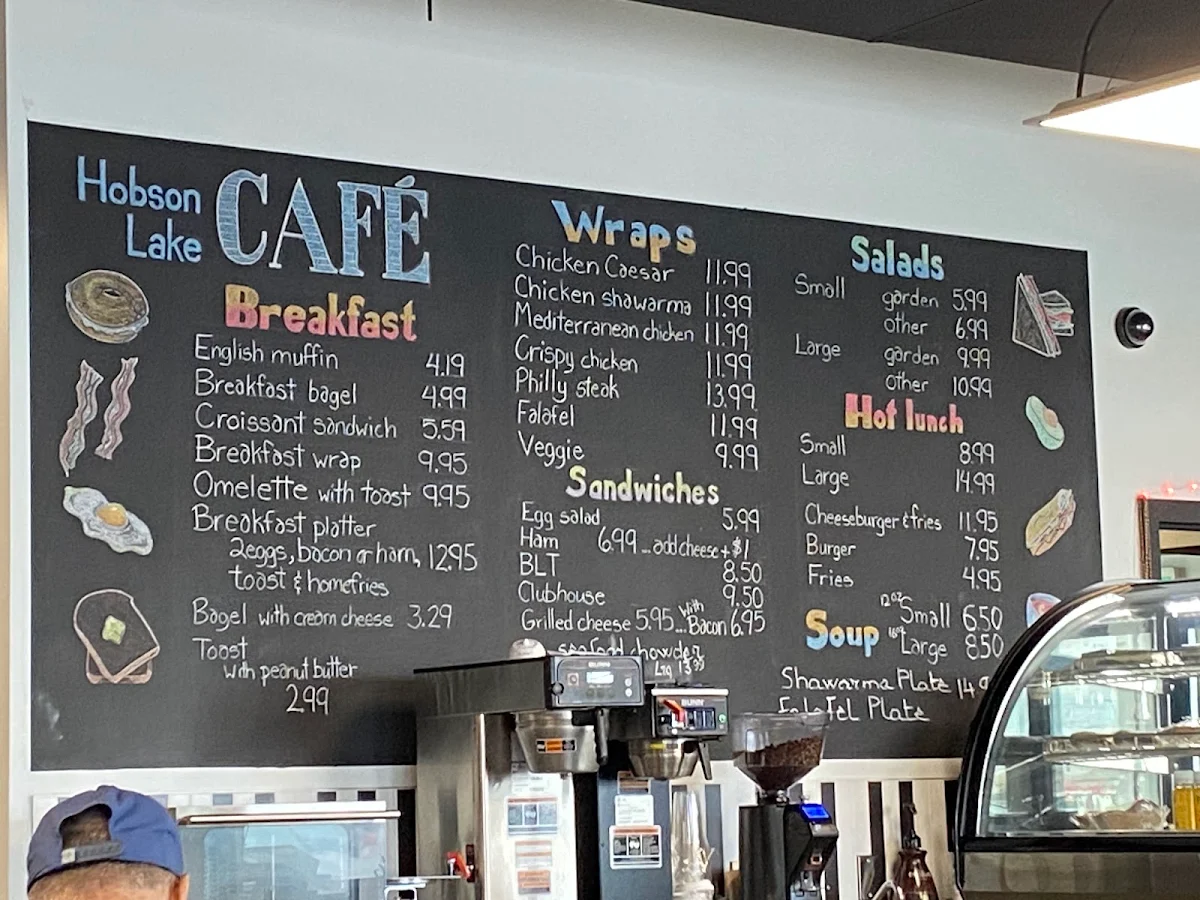 Hobson
Lake
CAFÉ
Breakfast
English muffin 4.19
Breakfast bagel 4.99
Croissant sandwich 5.59
Breakfast wrap 9.95
Omelette with toast 9.95
Breakfast platter
2eggs, bacon or ham, 12.95
toast & homefries
Bagel with cream cheese 3.29
Toast
with peanut butter
2.99
Wraps
Chicken Caesar 11.99
Chicken shawarma 11.99
Mediterranean chicken 11.99
Crispy chicken 11.99
Philly steak 13.99
Falafel 11.99
Veggie 9.99
Sandwiches
Egg salad 5.99
Ham 6.99 ... add cheese + $1
BLT 8.50
Clubhouse 9.50
Grilled cheese 5.95 ... With Bacon 6.95
seafood chowder
Salads
Small garden 5.99
other 6.99
Large garden 9.99
other 10.99
Hot lunch
Small 8.99
Large 14.99
Cheeseburger & fries 11.95
Burger 7.95
Fries 4.95
Soup
12oz Small 6.50
16oz Large 8.50
Shawarma Plate
Falafel Plate
BUNN
BUNN